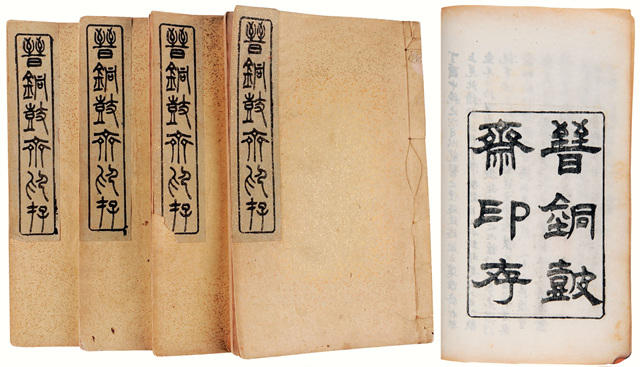 晉銅鼓齋印存
晉銅鼓齋印存
晉銅鼓齋印存
晉銅鼓齋印存
晉銅鼓
齋印存